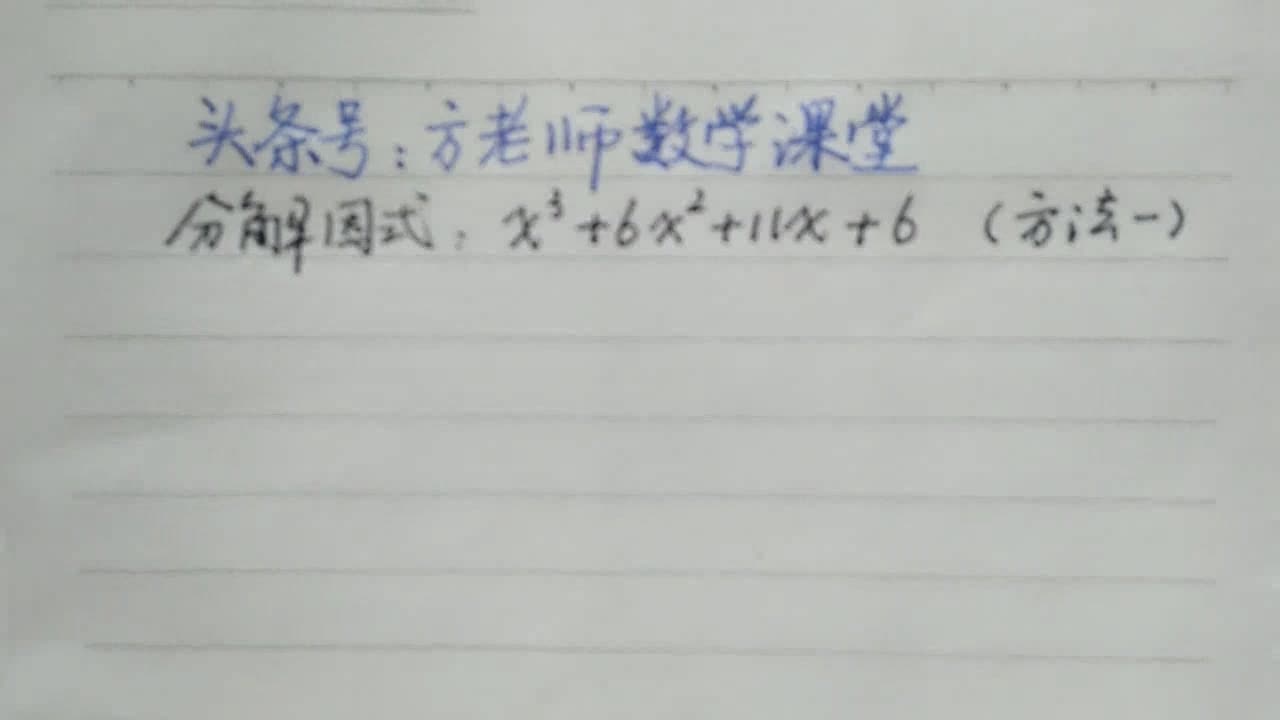 头条号：方老师数学课堂
分解因式：x³+6x²+11x+6（方法一）